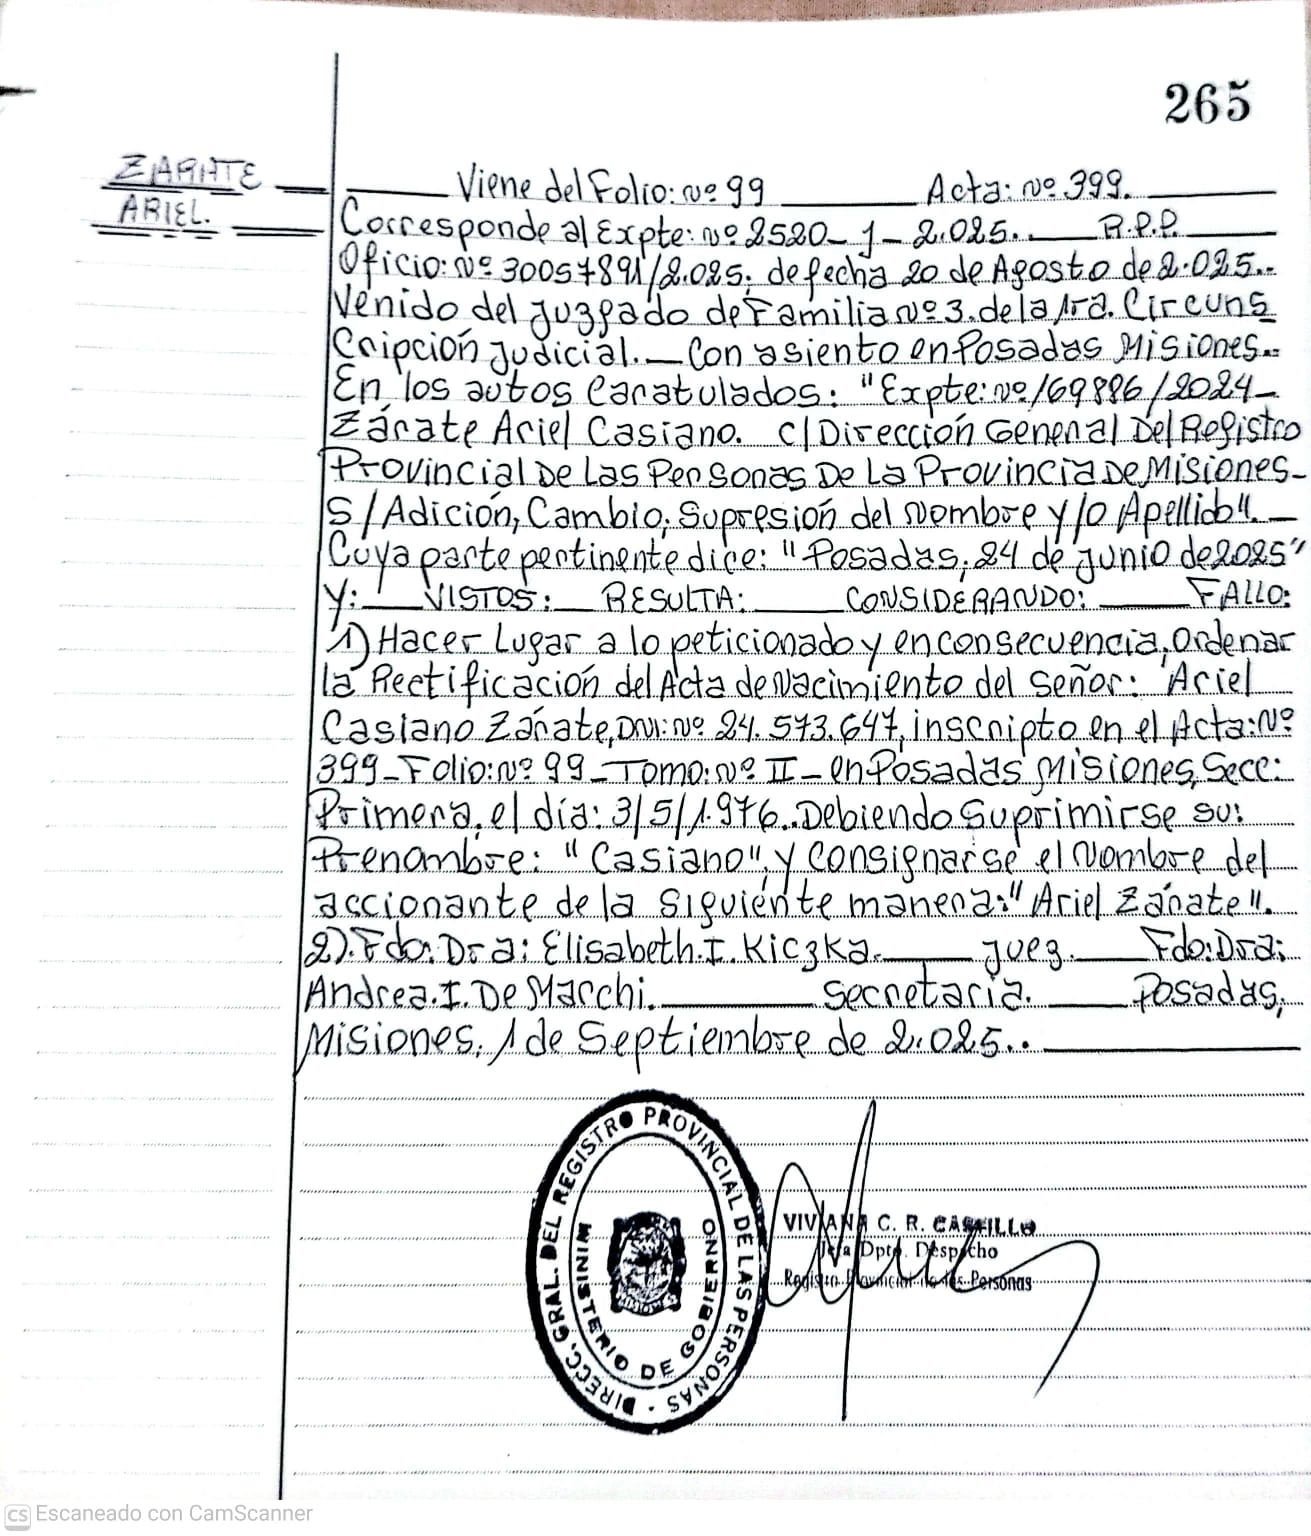 265
ZÁRATE
ARIEL.
Viene del Folio: Nº 99 Acta: Nº 399.
Corresponde al Expte: Nº 2520-J-2.025. R.P.P.
Oficio: Nº 30057891/2.025. de fecha 20 de Agosto de 2.025.
Venido del Juzgado de Familia Nº 3. de la 1ra. Circuns
cripción Judicial. — Con asiento en Posadas Misiones.
En los autos caratulados: "Expte: Nº/69886/2024-
Zárate Ariel Casiano. c/ Dirección General Del Registro
Provincial De Las Personas De La Provincia De Misiones-
S/Adición, Cambio, Supresión del Nombre y/o Apellido".
Cuya parte pertinente dice: "Posadas, 24 de Junio de 2025"
Y: VISTOS: RESULTA: CONSIDERANDO: FALLO:
1) Hacer Lugar a lo peticionado y en consecuencia, Ordenar
la Rectificación del Acta de Nacimiento del Señor: "Ariel
Casiano Zárate, DNI: Nº 24.573.647, inscripto en el Acta: Nº
399-Folio: Nº 99-Tomo: Nº II- en Posadas Misiones, Secc:
Primera, el día: 3/5/1.976. Debiendo Suprimirse su:
Prenombre: "Casiano", y Consignarse el Nombre del
accionante de la Siguiente manera: "Ariel Zárate".
2). Fdo: Dra: Elisabeth. I. Kiczka. Juez. Fdo: Dra:
Andrea. I. De Macchi. Secretaria. Posadas,
Misiones, 1 de Septiembre de 2.025.
DIRECC. GRAL. DEL REGISTRO PROVINCIAL DE LAS PERSONAS
MINISTERIO DE GOBIERNO
MISIONES
VIVIANA C. R. CASTILLO
Jefa Dpto. Despacho
Registro Provincial de las Personas
CS Escaneado con CamScanner